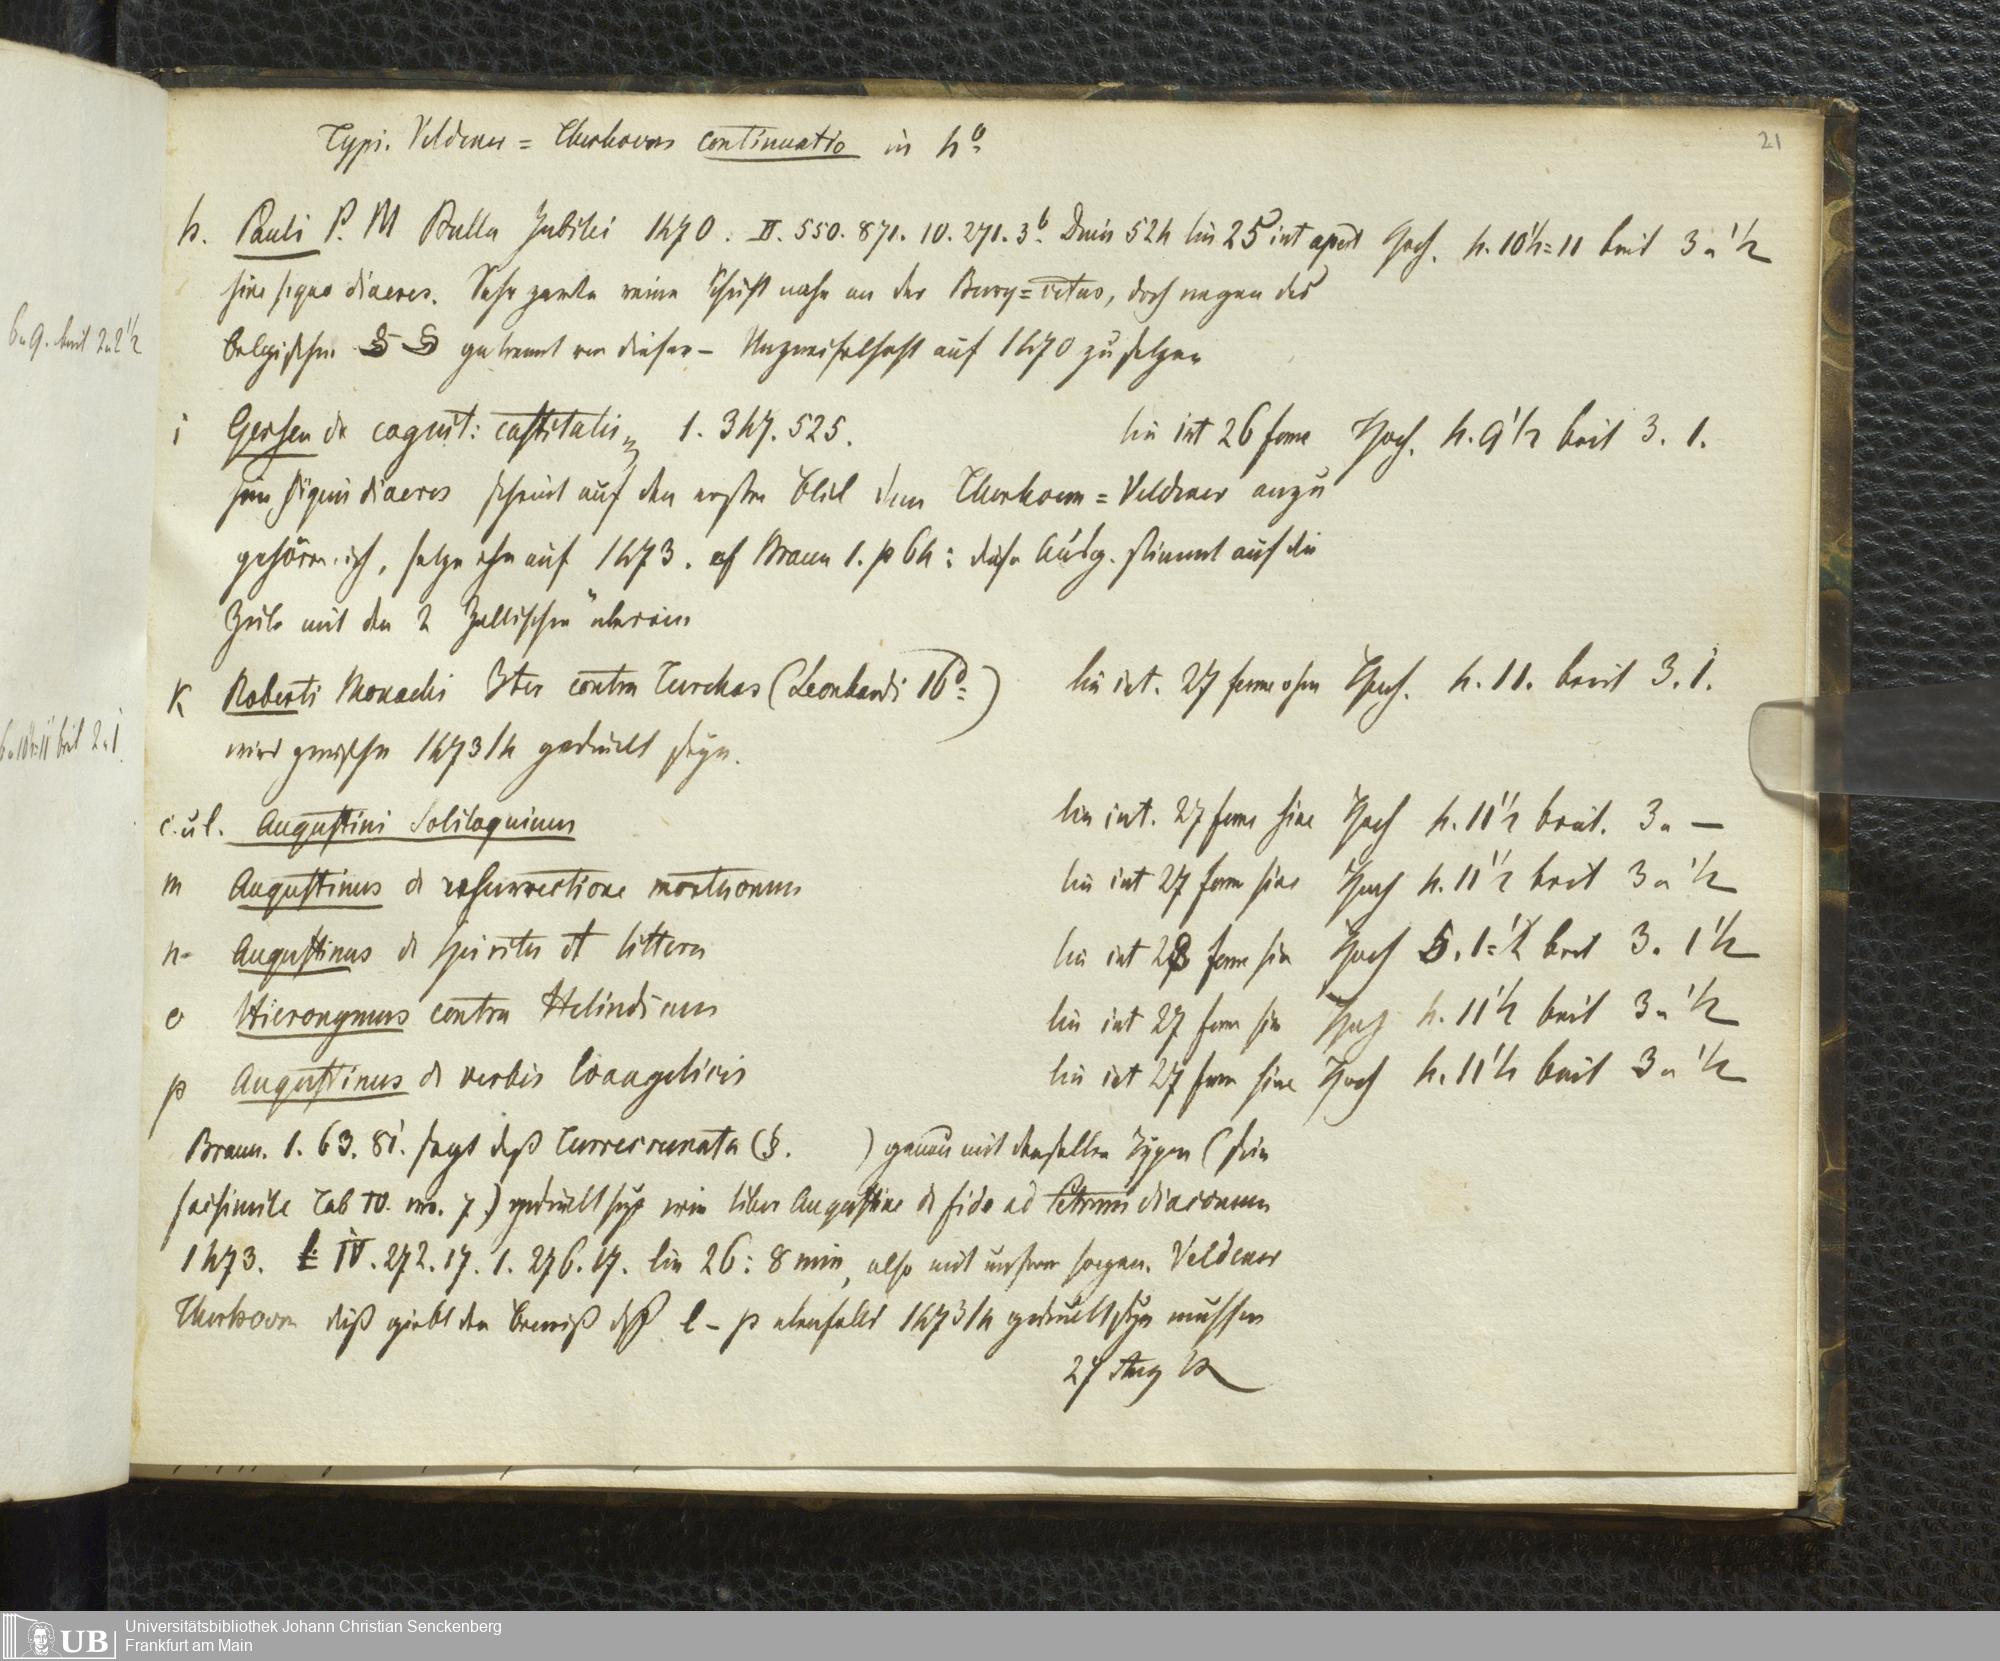 21
Typi. Veldener = Therhoern continuatio in 4o
h. Pauli P. M Bulla Jubilei 1470. II. 550. 871. 10. 271. 3b. Denis 524 lin 25 int apert Hoch. 4. 10½=11 breit 3 a ½
sine signo diaeres. Sehr zarte reine Schrift nahe an der, doch wegen des
belgischen getrennt von dieser – Unzweifelhaft auf 1470 zu setzen
i Gersen de cognit: castitatis 1. 347. 525. lin int 26 ferme Hoch. 4. 9½ breit 3. 1.
sine signis diaeres scheint auf den ersten Blick dem Therhoern = Veldener anzu
gehören. ich setze ihn auf 1473. cf Braun 1. p 64: diese Ausg. stimmt auf die
Zeile mit den 2 Zellischen überein
K Roberti Monachi Iter contra Turchas (Leonhardi 16o) lin int. 27 ferme ohne Hoch. 4. 11. breit 3. 1.
wird zwischen 1473/4 gedruckt seyn.
c. u l. Augustini Soliloquium lin int. 27 ferme sine Hoch 4. 11½ breit. 3 a —
m Augustinus de resurrectione mortuorum lin int 27 ferme sine Hoch 4. 11½ breit 3 a ½
n. Augustinus de spiritu et littera lin int 28 ferme sine Hoch 5. 1=½ breit 3. 1½
o Hieronymus contra Helindium lin int 27 ferme sine Hoch 4. 11½ breit 3 a ½
p Augustinus de verbis Evangelicis lin int 27 ferme sine Hoch 4. 11½ breit 3 a ½
Braun. 1. 63. 81. sagt daß Turrecremata (§. ) genau mit denselben Typen (sein
facsimile Tab IV. nro. 7.) gedruckt sey wie liber Augustine de fide ad Petrum diaconum
1473. IV. 272. 17. 1. 276. 17. lin 26: 8 min, also mit unserm sogen. Veldener
Therhoern dieß giebt den Beweiß daß l – p ebenfalls 1473/4 gedruckt seyn mussen
27 Aug
breit 2 a 2½
breit 2 a 1.
UB
Universitätsbibliothek Johann Christian Senckenberg
Frankfurt am Main